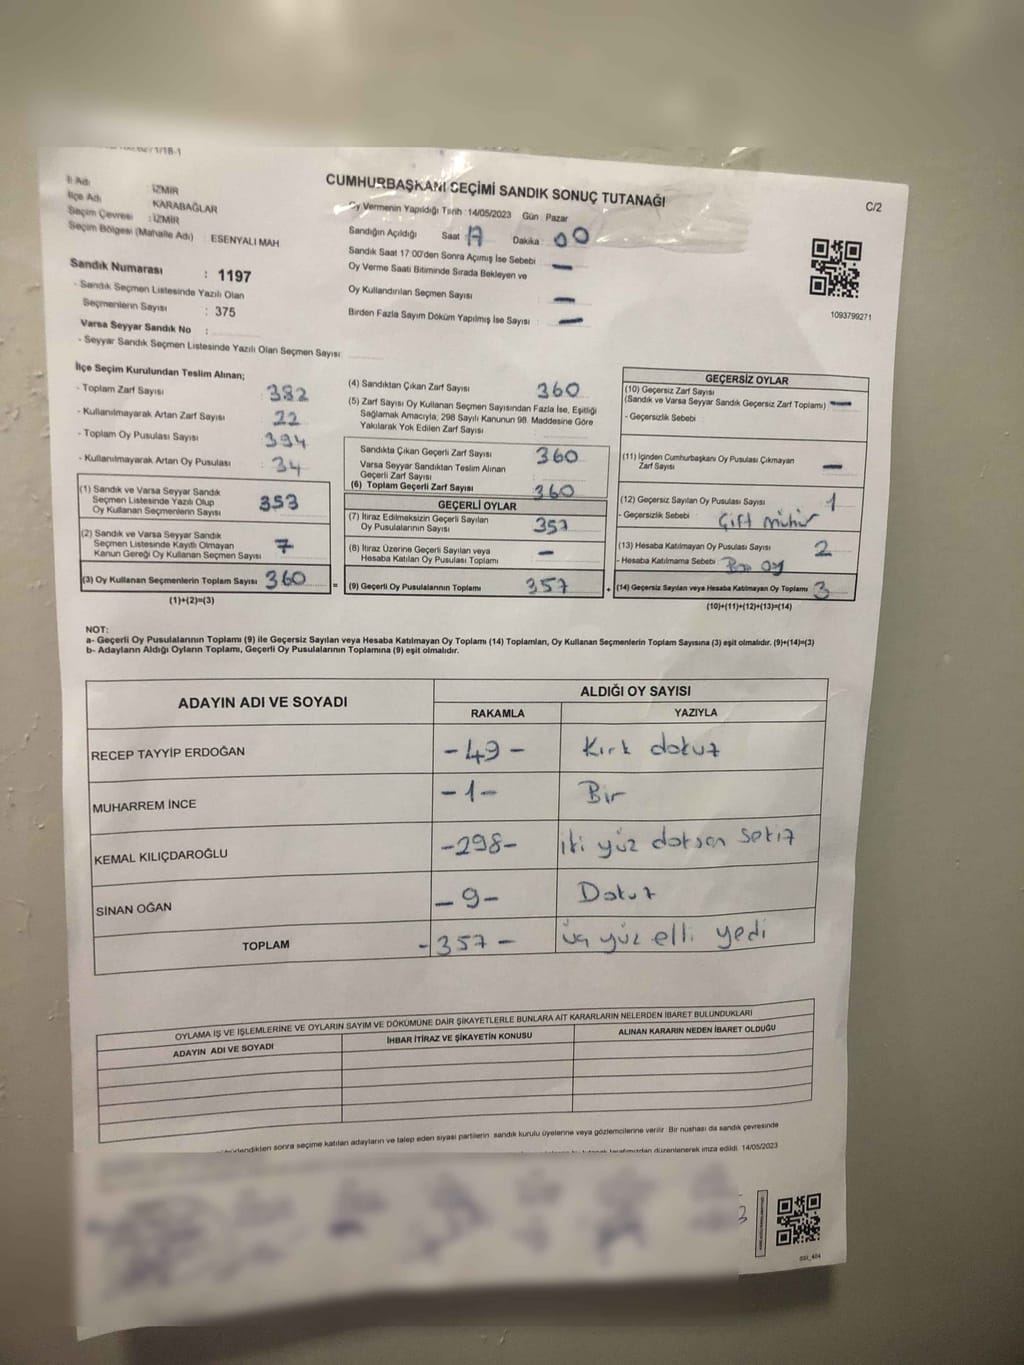 CUMHURBAŞKANI SEÇİMİ SANDIK SONUÇ TUTANAĞI
C/2
İl Adı : İZMİR
İlçe Adı : KARABAĞLAR
Seçim Çevresi : İZMİR
Seçim Bölgesi (Mahalle Adı) : ESENYALI MAH
Sandık Numarası : 1197
- Sandık Seçmen Listesinde Yazılı Olan
Seçmenlerin Sayısı : 375
Varsa Seyyar Sandık No :
- Seyyar Sandık Seçmen Listesinde Yazılı Olan Seçmen Sayısı:
Oy Vermenin Yapıldığı Tarih : 14/05/2023 Gün : Pazar
Sandığın Açıldığı Saat 17 Dakika : 00
Sandık Saat 17:00'den Sonra Açımış İse Sebebi : —
Oy Verme Saati Bitiminde Sırada Bekleyen ve
Oy Kullandırılan Seçmen Sayısı : —
Birden Fazla Sayım Döküm Yapılmış İse Sayısı : —
1093799271
İlçe Seçim Kurulundan Teslim Alınan;
- Toplam Zarf Sayısı : 382
- Kullanılmayarak Artan Zarf Sayısı : 22
- Toplam Oy Pusulası Sayısı : 394
- Kullanılmayarak Artan Oy Pusulası : 34
(1) Sandık ve Varsa Seyyar Sandık
Seçmen Listesinde Yazılı Olup
Oy Kullanan Seçmenlerin Sayısı 353
(2) Sandık ve Varsa Seyyar Sandık
Seçmen Listesinde Kayıtlı Olmayan
Kanun Gereği Oy Kullanan Seçmen Sayısı 7
(3) Oy Kullanan Seçmenlerin Toplam Sayısı 360
(1)+(2)=(3)
=
(4) Sandıktan Çıkan Zarf Sayısı : 360
(5) Zarf Sayısı Oy Kullanan Seçmen Sayısından Fazla İse, Eşitliği
Sağlamak Amacıyla, 298 Sayılı Kanunun 98. Maddesine Göre
Yakılarak Yok Edilen Zarf Sayısı :
Sandıkta Çıkan Geçerli Zarf Sayısı 360
Varsa Seyyar Sandıktan Teslim Alınan
Geçerli Zarf Sayısı
(6) Toplam Geçerli Zarf Sayısı 360
GEÇERLİ OYLAR
(7) İtiraz Edilmeksizin Geçerli Sayılan
Oy Pusulalarının Sayısı 357
(8) İtiraz Üzerine Geçerli Sayılan veya
Hesaba Katılan Oy Pusulası Toplamı —
(9) Geçerli Oy Pusulalarının Toplamı 357
+
GEÇERSİZ OYLAR
(10) Geçersiz Zarf Sayısı
(Sandık ve Varsa Seyyar Sandık Geçersiz Zarf Toplamı) —
- Geçersizlik Sebebi :
(11) İçinden Cumhurbaşkanı Oy Pusulası Çıkmayan
Zarf Sayısı —
(12) Geçersiz Sayılan Oy Pusulası Sayısı : 1
- Geçersizlik Sebebi : Çift mühür
(13) Hesaba Katılmayan Oy Pusulası Sayısı : 2
- Hesaba Katılmama Sebebi : Boş oy
(14) Geçersiz Sayılan veya Hesaba Katılmayan Oy Toplamı 3
(10)+(11)+(12)+(13)=(14)
NOT:
a- Geçerli Oy Pusulalarının Toplamı (9) ile Geçersiz Sayılan veya Hesaba Katılmayan Oy Toplamı (14) Toplamları, Oy Kullanan Seçmenlerin Toplam Sayısına (3) eşit olmalıdır. (9)+(14)=(3)
b- Adayların Aldığı Oyların Toplamı, Geçerli Oy Pusulalarının Toplamına (9) eşit olmalıdır.
ADAYIN ADI VE SOYADI
ALDIĞI OY SAYISI
RAKAMLA YAZIYLA
RECEP TAYYİP ERDOĞAN -49- Kırk dokuz
MUHARREM İNCE -1- Bir
KEMAL KILIÇDAROĞLU -298- iki yüz doksan sekiz
SİNAN OĞAN -9- Dokuz
TOPLAM -357- üç yüz elli yedi
OYLAMA İŞ VE İŞLEMLERİNE VE OYLARIN SAYIM VE DÖKÜMÜNE DAİR ŞİKAYETLERLE BUNLARA AİT KARARLARIN NELERDEN İBARET BULUNDUKLARI
ADAYIN ADI VE SOYADI
İHBAR İTİRAZ VE ŞİKAYETİN KONUSU
ALINAN KARARIN NEDEN İBARET OLDUĞU
sonra seçime katılan adayların ve talep eden siyasi partilerin sandık kurulu üyelerine veya gözlemcilerine verilir. Bir nüshası da sandık çevresinde
düzenlenerek imza edildi. 14/05/2023
3